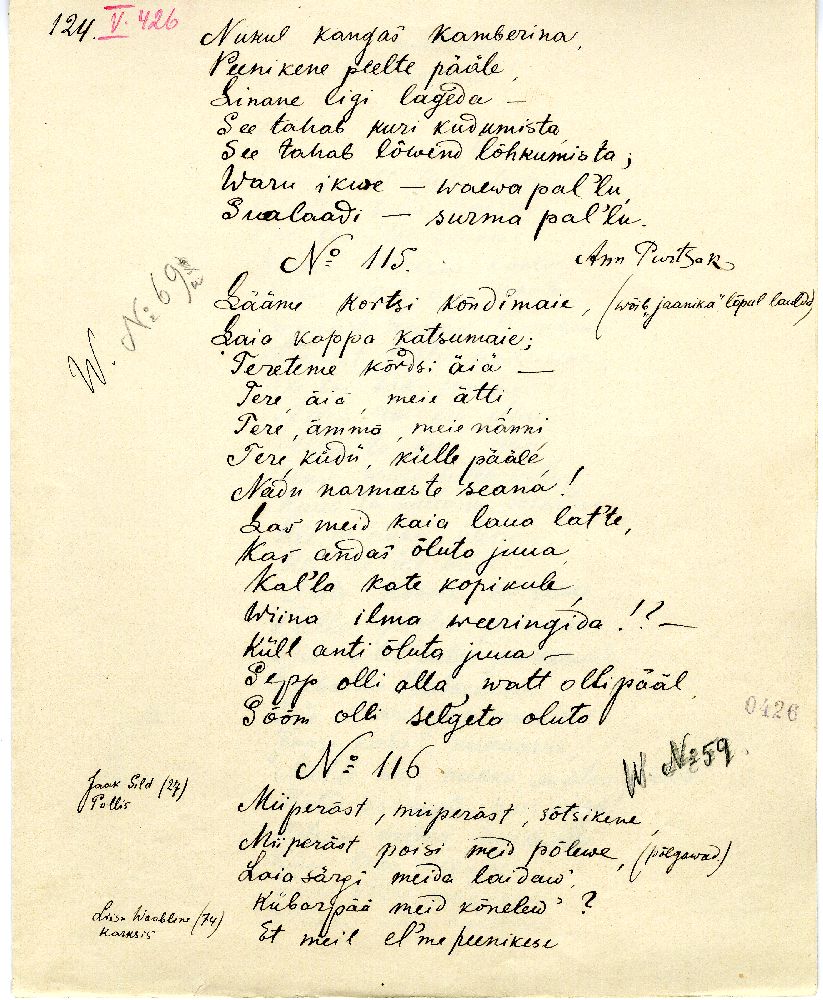 124. V. 426
Nukul kangas kamberina,
Peenikene peelte pääle,
Linane ligi lageda —
See tahab kuri kudumista,
See tahab lõwend lõhkumista;
Waru ikwe — waewa pal'lu,
Sualaadi — surma pal'lu.
Nº 115.
Ann Purtsak
W. Nº 69
Lääme kortsi kondimaie, (wõib „jaanika" lõpul laulda)
Laia kappa katsumaie;
Tereteme kõrdsi äiä —
Tere, äiä, meie ätti,
Tere, ämmä, meie nänni,
Tere, küdü, külle pääle,
Nadu narmaste seana!
Las meid kaia laua lat'te,
Kas andas õluta juua,
Kal'la kate kopikule,
Wiina ilma weeringida!!?—
Küll anti õluta juua —
Sepp olli alla, watt olli pääl,
Sõõm olli selgeta oluta
0426
Nº 116
W. Nº 59.
Jaak Sild (27)
Pollis
Miiperäst, miiperäst, sõtsikene,
Miiperäst poisi meid põlewe, (põlgawad)
Laia särgi meida laidaw',
Kübarpää meid kõnelew'?
Liisu Waabline (74)
Karksis
Et meil el'me peenikese